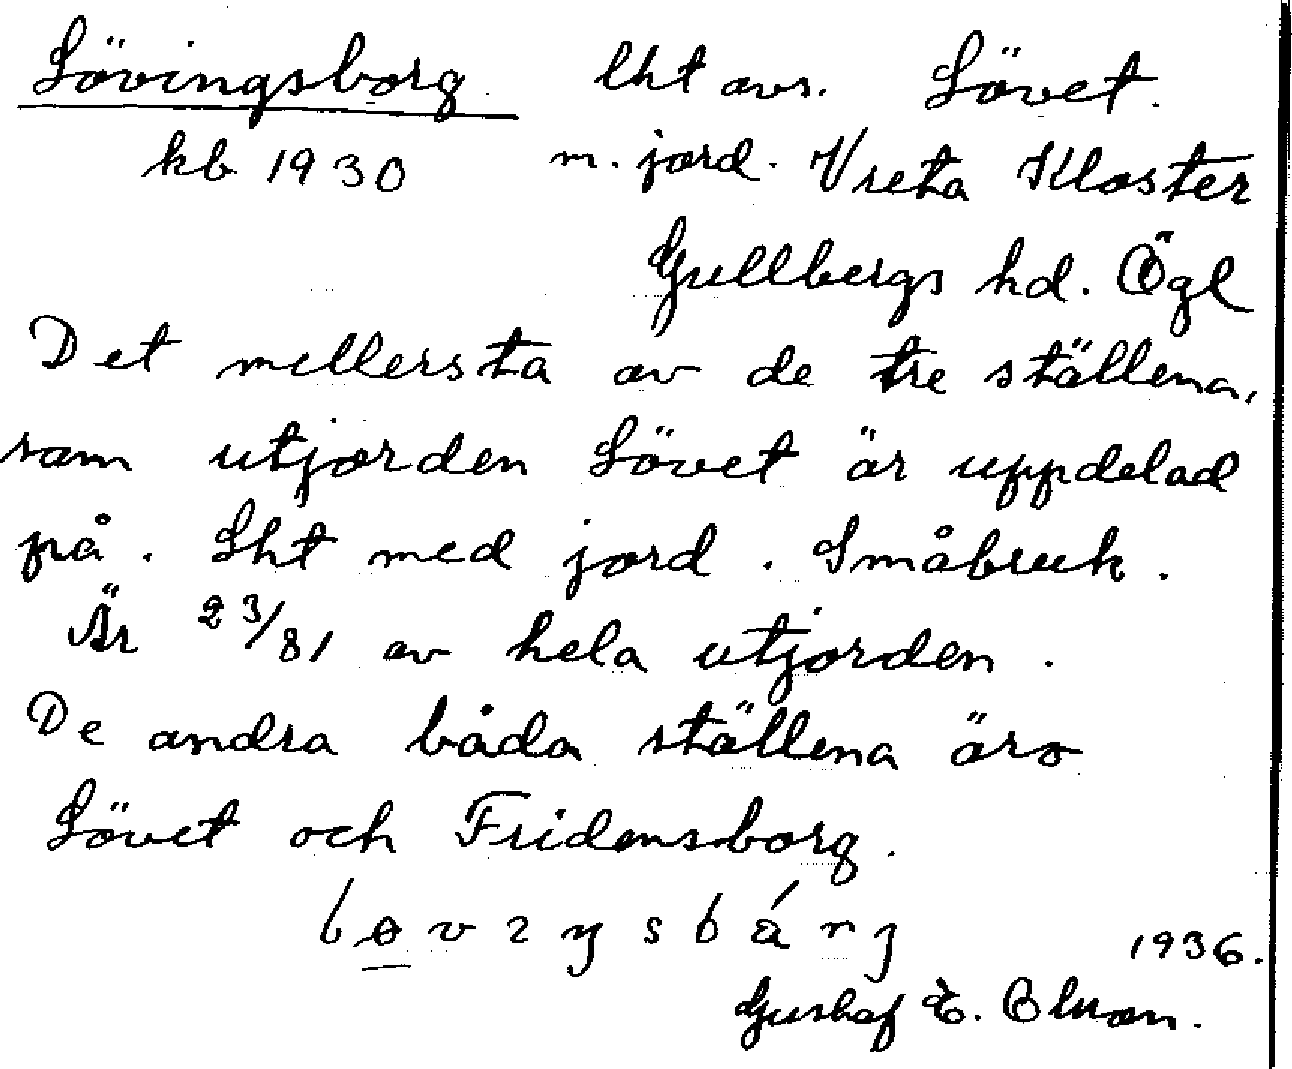 Lövingsborg lht avs. Lövet.
kb 1930 m. jord. Vreta Kloster
Gullbergs hd. Ögl
Det mellersta av de tre ställena,
som utjorden Lövet är uppdelad
på. Lht med jord. Småbruk.
Är 23/81 av hela utjorden.
De andra båda ställena äro
Lövet och Fridensborg.
1936.
Gustaf E.